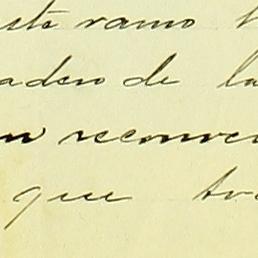 este ramo
adero de la
n reconve
que tra